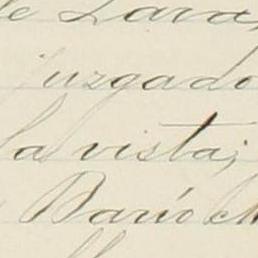 de Lara,
juzgado
la vista;
Barrio